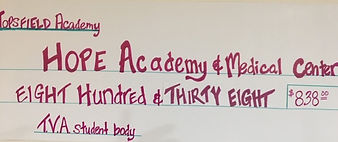 TOPSFIELD Academy
HOPE Academy & Medical Center
EIGHT Hundred & THIRTY EIGHT $838.00
T.V.A student body